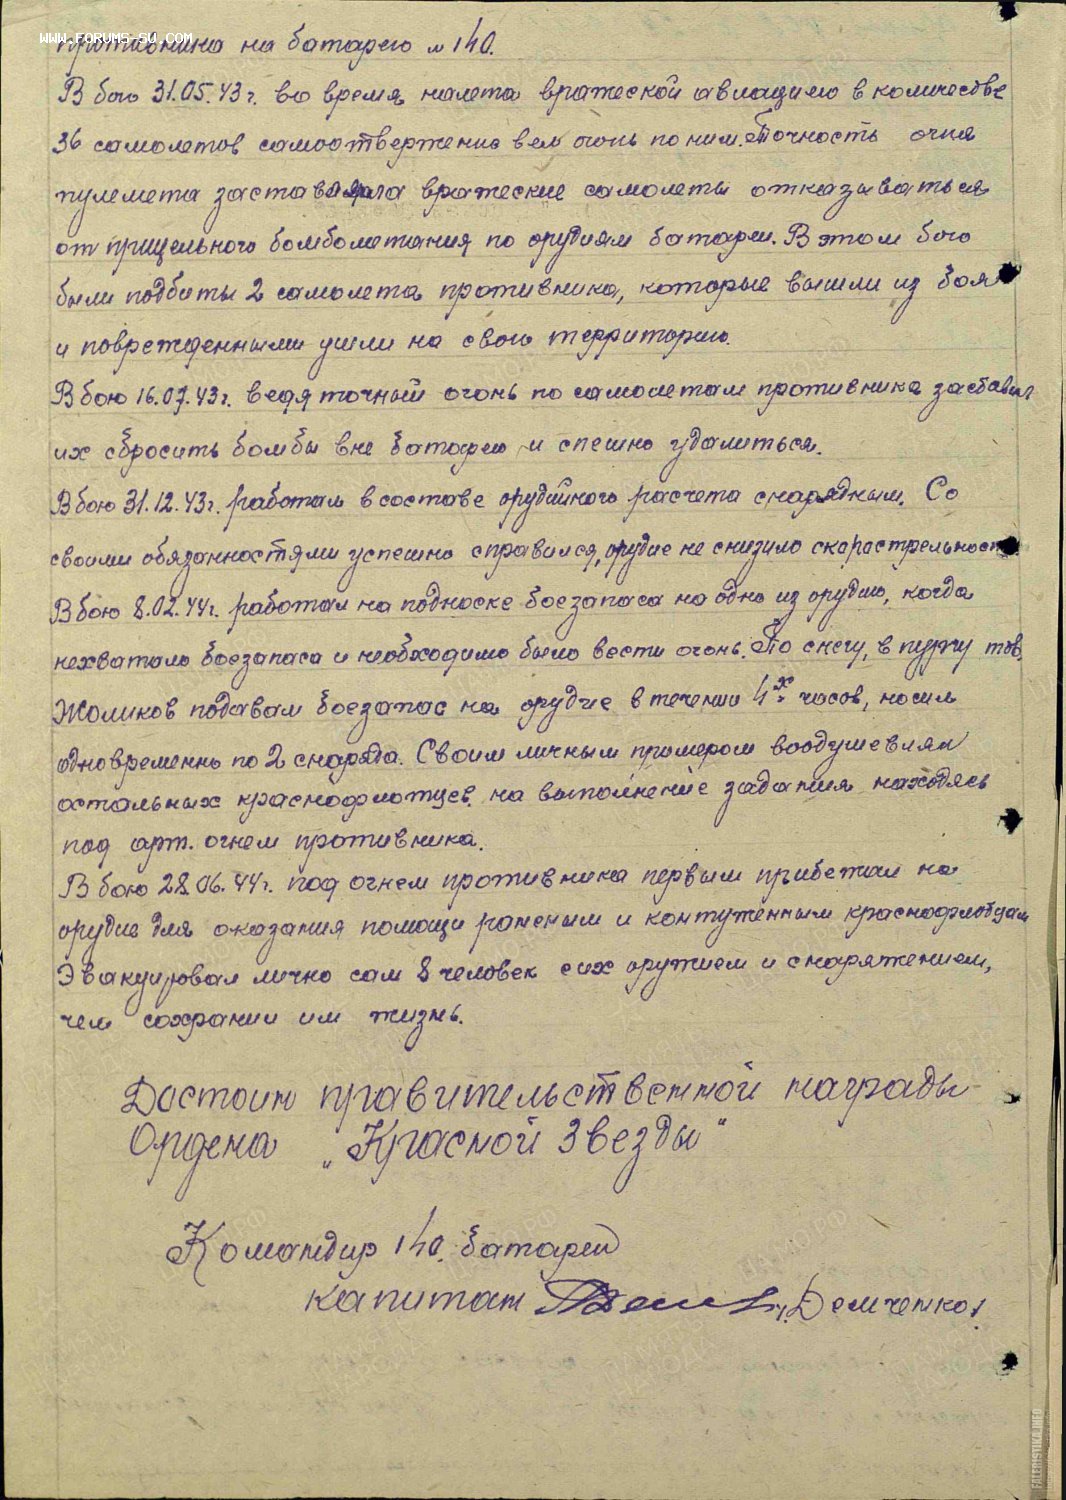 WWW.FORUMS-SU.COM
противника на батарею № 140.
В бою 31.05.43 г. во время налета вражеской авиацией в количестве
36 самолетов самоотверженно вел огонь по ним. Точность огня
пулемета заставляла вражеские самолеты отказываться
от прицельного бомбометания по орудиям батареи. В этом бою
были подбиты 2 самолета противника, которые вышли из боя
и поврежденными ушли на свою территорию.
В бою 16.07.43 г. ведя точный огонь по самолетам противника заставил
их сбросить бомбы вне батареи и спешно удалиться.
В бою 31.12.43 г. работал в составе орудийного расчета снарядным. Со
своими обязанностями успешно справился, орудие не снизило скорострельности.
В бою 8.02.44 г. работал на подноске боезапаса на одно из орудию, когда
нехватало боезапаса и необходимо было вести огонь. По снегу, в пургу тов.
Жоликов подавал боезапас на орудие в течении 4х часов, носил
одновременно по 2 снаряда. Своим личным примером воодушевлял
остальных краснофлотцев на выполнение задания находясь
под арт. огнем противника.
В бою 28.06.44 г. под огнем противника первым прибежал на
орудие для оказания помощи раненым и контуженным краснофлотцам
Эвакуировал лично сам 8 человек с их оружием и снаряжением,
чем сохранил им жизнь.
Достоин правительственной награды
Ордена „Красной Звезды"
Командир 140. батареи
капитан /Демченко/.
FALERISTIKA.INFO